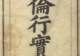 倫行實